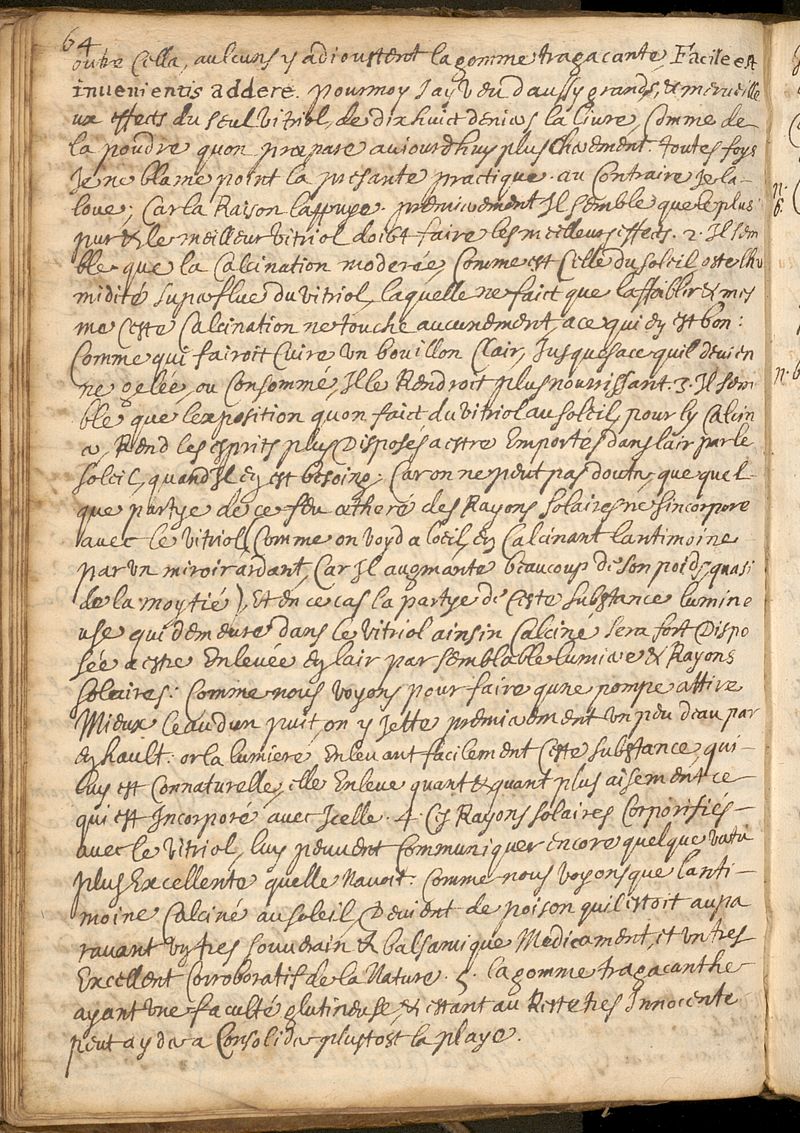 64
outre Cella, aulcuns y adioustent la gomme tragacante, Facile est
inuenientis addere. pourmoy Jay veu daussy grands, & merueille
ux effects du seul vitriol, de dixhuict deniers la liure, Comme de
la poudre quon prepare auiourdhuy plus Cherement. toutes foys
Je ne blame point la presante practique. au Contraire Je la-
loue; Car la Raison lappuye. premierement Il semble que le plus
pur & le meilleur vitriol doibt faire les meilleurs effects. 2. Il sem
ble que la Calcination moderée, Comme est Celle du soleil oste lhu
midité superflue du vitriol, laquelle ne faict que laffoiblir & mes
me Ceste Calcination ne touche aucunement, a ce qui ey est bon:
Comme qui fairoit Cuire vn bouillon Clair, Jusques a ce quil deuien
ne gelée, ou Consommé, Il le Rendroit plus nourrissant. 3. Il sem
ble que lexposition quon faict du vitriol au soleil, pour ly Calcin
er, Rend les esprits plus Disposés a estre Emportés dans lair par le
soleil, quand Il ey est besoing; Car on ne peut pas douter, que quel-
que partye de ce feu ætheré des Rayons solaires ne sincorpore
auec le vitriol (Comme on voyd a loeil, ey Calcinant lantimoine
par vn miroir ardant, Car Il augmante beaucoup de son poids, quasi
de la moytié), Et en ce cas la partye de Ceste substance lumine
use qui demeure dans le vitriol ainsin Calciné sera fort Dispo
sée a estre Enleuée ey lair par semblable lumiere & Rayons
solaires: Comme nous voyons pour faire qune pompe attire
Mieux leau dun puit, on y Jette premierement vn peu deau par
ey hault: or la lumiere Enleuant facilement Ceste substance, qui-
luy est Connaturelle, elle Enleue quant & quant plus aisement ce-
qui est Incorporé auec Icelle. 4. Ces Rayons solaires Corporifiés-
auec le vitriol, luy peuuent Communiquer encore quelque vertu
plus Excellente quelle Nauoit: Comme nous voyons que lanti-
moine Calciné au soleil, Deuient de poison quil estoit aupa
rauant vy tres souuerain & balsamique Medicament, et vn tres
Excellent Corroboratif de la Nature. 5. la gomme tragacanthe
ayant vne faculté glutineuse, & estant au Reste tres Innocente
peut ayder a Consolider plustost la playe.